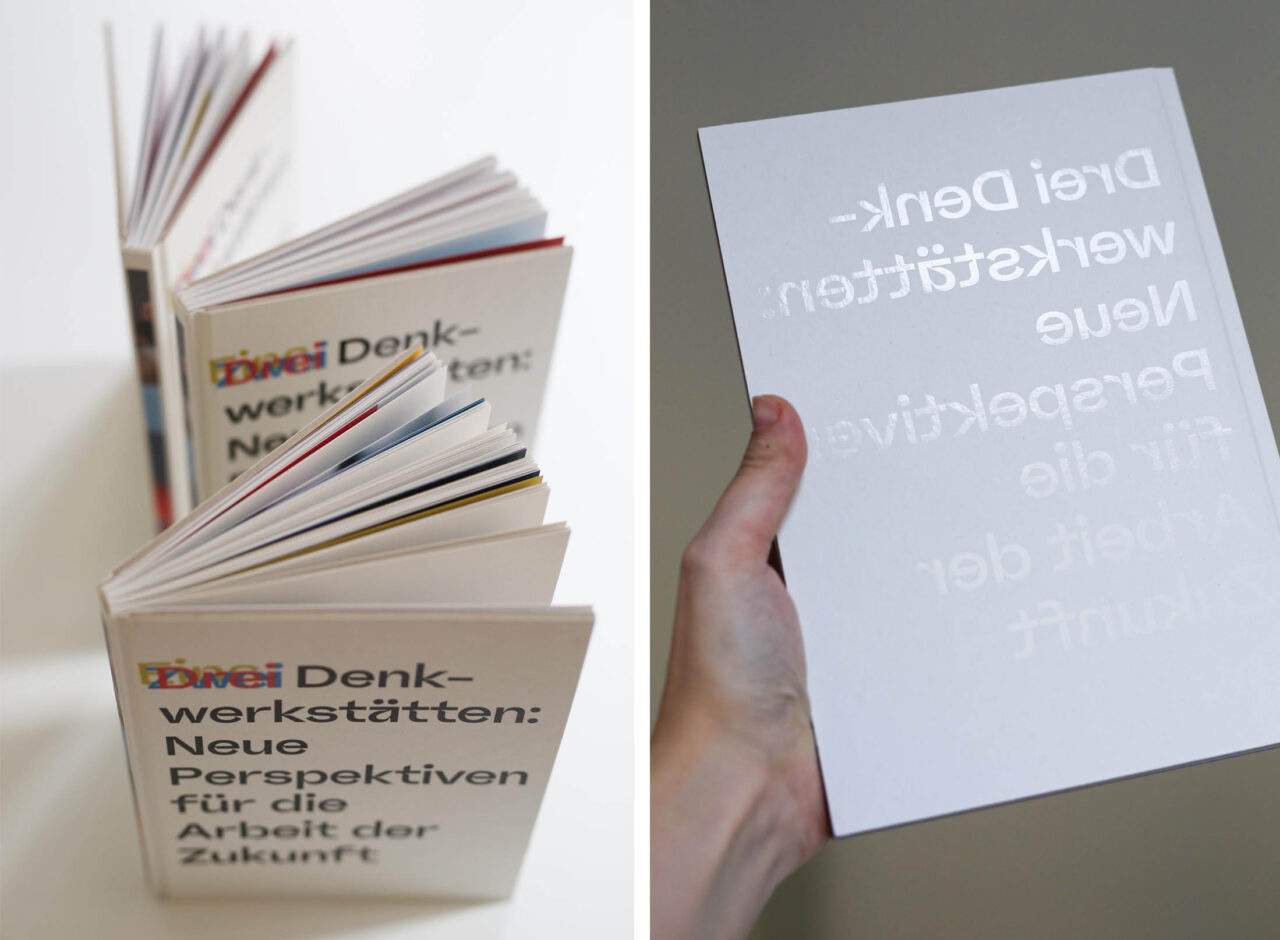 Eine Zwei Drei Denk–
werks tten:
Ne
Eine Zwei Drei Denk–
werkstätten:
Neue
Perspektiven
für die
Arbeit der
Zukunft
Drei Denk–
werkstätten:
Neue
Perspektiven
für die
Arbeit der
Zukunft